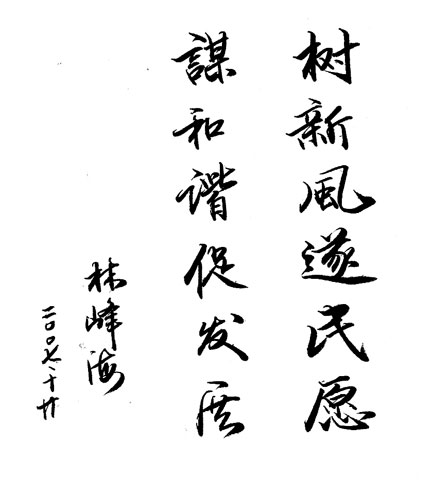 树新風遂民愿
謀和谐促发展
林峰海
二〇〇七、十、廿